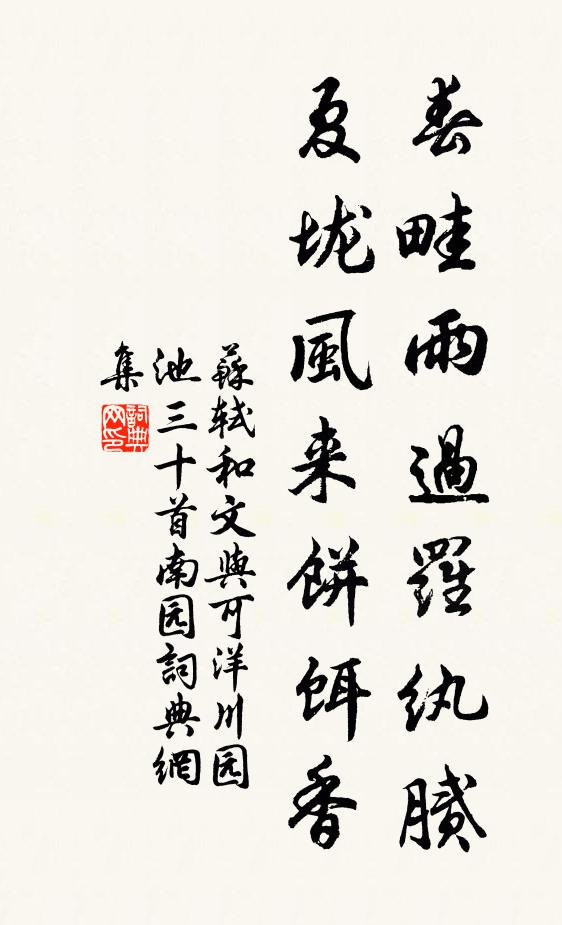 春畦雨過羅紈膩
夏垅風来餅餌香
蘇軾和文與可洋川园
池三十首南园詞典網
集
詞典网印